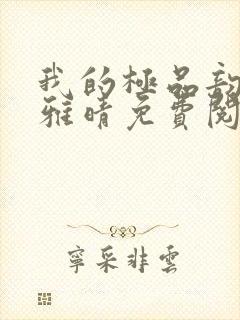 我的極品
雅晴免費閱
寧采非雲